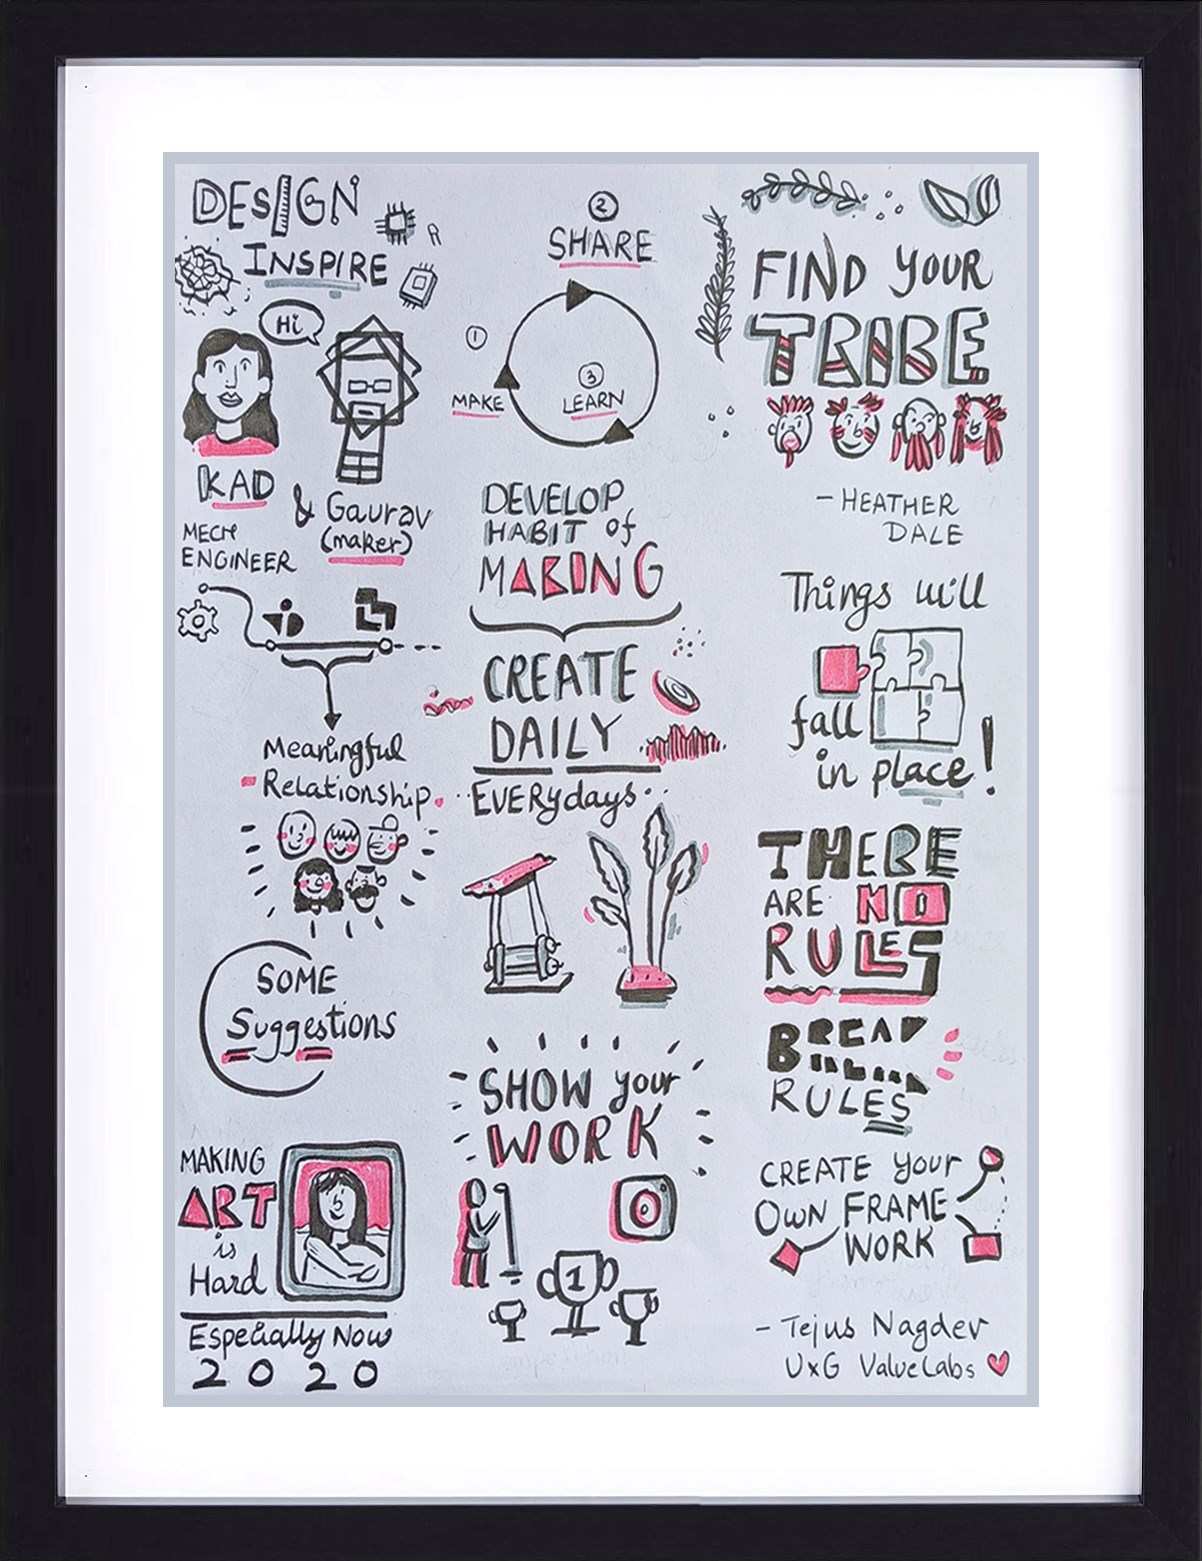 DESIGN
INSPIRE
Hi
KAD
& Gaurav
(maker)
MECH
ENGINEER
Meaningful
Relationship
SOME
Suggestions
MAKING
ART
is
Hard
Especially Now
2020
2
SHARE
1
MAKE
3
LEARN
DEVELOP
HABIT of
MAKING
CREATE
DAILY
EVERYdays
SHOW your
WORK
1
FIND YOUR
TRIBE
- HEATHER
DALE
Things will
fall
in place!
THERE
ARE NO
RULES
BREAK
RULES
CREATE your
OWN FRAME
WORK
- Tejus Nagdev
UxG ValueLabs